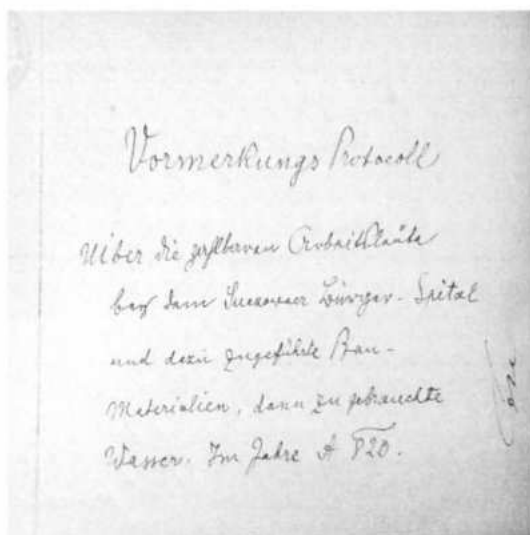 Vormerkungs Protocoll
Uiber die zahlbaren Arbeitsläute
bey dem Bürger-Spital
und dazu zugeführte Bau-
Materialien, dann zu gebrauchte
Wasser. Im Jahre 820.